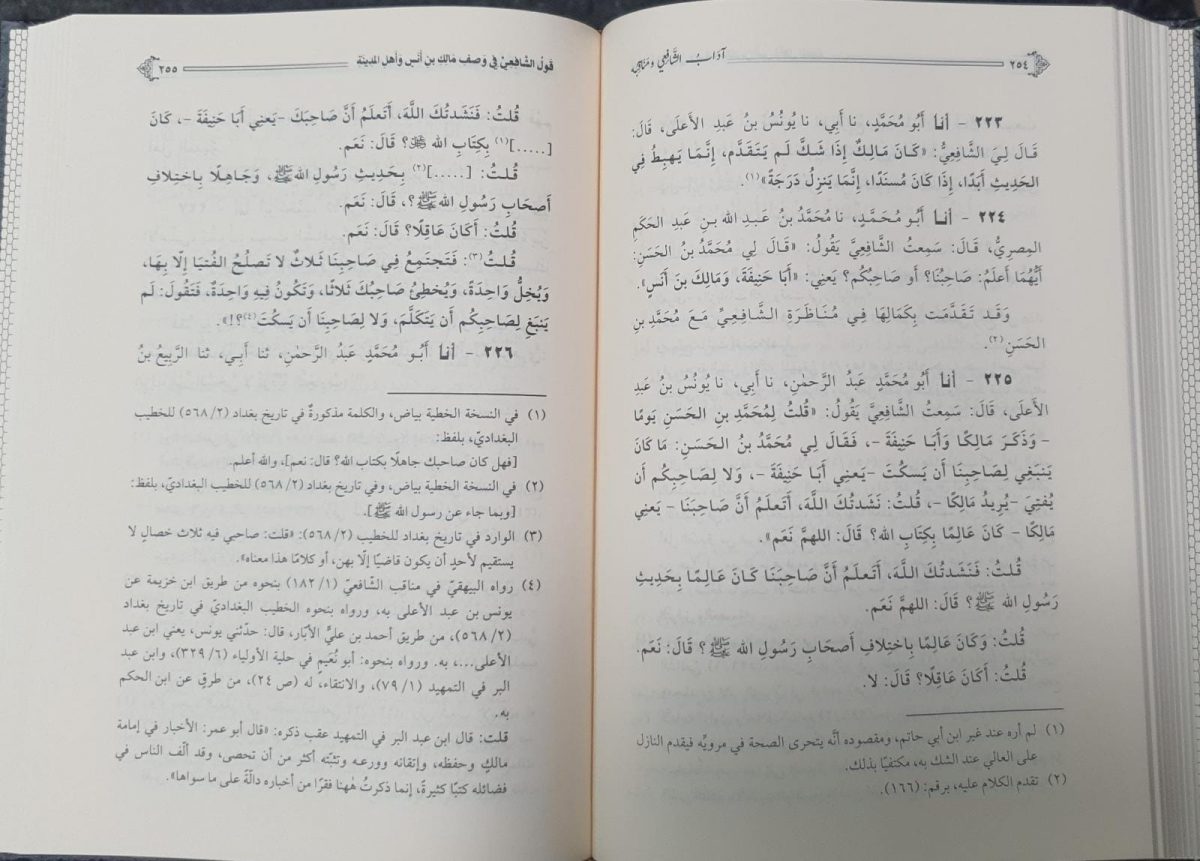 ٢٥٤ آدَابُ الشَّافِعِي وَمَنَاقِبه
٢٢٣ - أنا أَبُو مُحَمَّدٍ، نا أَبِي، نا يُونُسُ بنُ عَبدِ الأَعلَى، قَالَ:
قَالَ لِيَ الشَّافِعِيُّ: «كَانَ مَالِكٌ إِذَا شَكَّ لَم يَتَقَدَّم، إِنَّمَا يَهبِطُ فِي
الحَدِيثِ أَبَدًا، إِذَا كَانَ مُسنَدًا، إِنَّمَا يَنزِلُ دَرَجَةً»(١).
٢٢٤ - أنا أَبُو مُحَمَّدٍ، نا مُحَمَّدُ بنُ عَبدِ الله بنِ عَبدِ الحَكَمِ
المِصرِيُّ، قَالَ: سَمِعتُ الشَّافِعِيَّ يَقُولُ: «قَالَ لِي مُحَمَّدُ بنُ الحَسَنِ:
أَيُّهُمَا أَعلَمُ: صَاحِبُنَا؟ أو صَاحِبُكُم؟ يَعنِي: «أَبَا حَنِيفَةَ، وَمَالِكَ بنَ أَنَسٍ».
وَقَد تَقَدَّمَت بِكَمَالِهَا فِي مُنَاظَرَةِ الشَّافِعِيِّ مَعَ مُحَمَّدِ بنِ
الحَسَنِ(٢).
٢٢٥ - أنا أَبُو مُحَمَّدٍ عَبدُ الرَّحمٰنِ، نا أَبِي، نا يُونُسُ بنُ عَبدِ
الأَعلَى، قَالَ: سَمِعتُ الشَّافِعِيَّ يَقُولُ: «قُلتُ لِمُحَمَّدِ بنِ الحَسَنِ يَومًا
- وَذَكَرَ مَالِكًا وَأَبَا حَنِيفَةَ -، فَقَالَ لِي مُحَمَّدُ بنُ الحَسَنِ: مَا كَانَ
يَنبَغِي لِصَاحِبِنَا أَن يَسكُتَ -يَعنِي أَبَا حَنِيفَةَ -، وَلَا لِصَاحِبِكُم أَن
يُفتِيَ -يُرِيدُ مَالِكًا -، قُلتُ: نَشَدتُكَ اللَّهَ، أَتَعلَمُ أَنَّ صَاحِبَنَا - يَعنِي
مَالِكًا - كَانَ عَالِمًا بِكِتَابِ الله؟ قَالَ: اللهمَّ نَعَم».
قُلتُ: فَنَشَدتُكَ اللَّهَ، أَتَعلَمُ أَنَّ صَاحِبَنَا كَانَ عَالِمًا بِحَدِيثِ
رَسُولِ الله ﷺ؟ قَالَ: اللهمَّ نَعَم.
قُلتُ: وَكَانَ عَالِمًا بِاختِلَافِ أَصحَابِ رَسُولِ الله ﷺ؟ قَالَ: نَعَم.
قُلتُ: أَكَانَ عَاقِلًا؟ قَالَ: لا.
(١) لم أره عند غير ابن أبي حاتم، ومقصوده أنَّه يتحرى الصحة في مرويِّه فيقدم النازل
على العالي عند الشك به، مكتفيًا بذلك.
(٢) تقدم الكلام عليه، برقم: (١٦٦).
قولُ الشَّافِعِيِّ في وَصفِ مَالِكِ بنِ أنَسٍ وَأهلِ المدينَةِ ٢٥٥
قُلتُ: فَنَشَدتُكَ اللَّهَ، أَتَعلَمُ أَنَّ صَاحِبَكَ -يَعنِي أَبَا حَنِيفَةَ -، كَانَ
[.....](١) بِكِتَابِ الله ﷻ؟ قَالَ: نَعَم.
قُلتُ: [.....](٢) بِحَدِيثِ رَسُولِ اللهﷺ، وَجَاهِلًا بِاختِلَافِ
أَصحَابِ رَسُولِ اللهﷺ؟، قَالَ: نَعَم.
قُلتُ: أَكَانَ عَاقِلًا؟ قَالَ: نَعَم.
قُلتُ(٣): فَتَجتَمِعُ فِي صَاحِبِنَا ثَلاثٌ لا تَصلُحُ الفُتيَا إِلَّا بِهَا،
وَيُخِلُّ وَاحِدَةً، وَيُخطِئُ صَاحِبُكَ ثَلاثًا، وَتَكُونُ فِيهِ وَاحِدَةٌ، فَتَقُولَ: لَم
يَنبَغِ لِصَاحِبِكُم أَن يَتَكَلَّمَ، وَلا لِصَاحِبِنَا أَن يَسكُتَ(٤)؟!».
٢٢٦ - أنا أَبُو مُحَمَّدٍ عَبدُ الرَّحمٰنِ، ثنا أَبِي، ثنا الرَّبِيعُ بنُ
(١) في النسخة الخطية بياض، والكلمة مذكورةٌ في تاريخ بغداد (٢/ ٥٦٨) للخطيب
البغداديّ، بلفظ:
[فهل كان صاحبك جاهلًا بكتاب الله؟ قال: نعم]، والله أعلم.
(٢) في النسخة الخطية بياض، وفي تاريخ بغداد (٢/ ٥٦٨) للخطيب البغداديّ، بلفظ:
[وبما جاء عن رسول الله ﷺ].
(٣) الوارد في تاريخ بغداد للخطيب (٢/ ٥٦٨): «قلت: صاحبي فيه ثلاث خصالٍ لا
يستقيم لأحدٍ أن يكون قاضيًا إلّا بهن، أو كلامًا هذا معناه».
(٤) رواه البيهقيّ في مناقب الشّافعيّ (١/ ١٨٢) بنحوه من طريق ابن خزيمة عن
يونس بن عبد الأعلى به، ورواه بنحوه الخطيب البغداديّ في تاريخ بغداد
(٢/ ٥٦٨)، من طريق أحمد بن عليٍّ الأبّار، قال: حدّثني يونس، يعني ابن عبد
الأعلى...، به. ورواه بنحوه: أبو نُعَيم في حلية الأولياء (٦/ ٣٢٩)، وابن عبد
البر في التمهيد (١/ ٧٩)، والانتقاء، له (ص ٢٤)، من طرقٍ عن ابن الحكم
به.
قلت: قال ابن عبد البر في التمهيد عقب ذكره: «قال أبو عمر: الأخبار في إمامة
مالكٍ وحفظه، وإتقانه وورعه وتثبّته أكثر من أن تحصى، وقد ألّف الناس في
فضائله كتبًا كثيرةً، إنما ذكرتُ هٰهنا فقرًا من أخباره دالّةً على ما سواها».